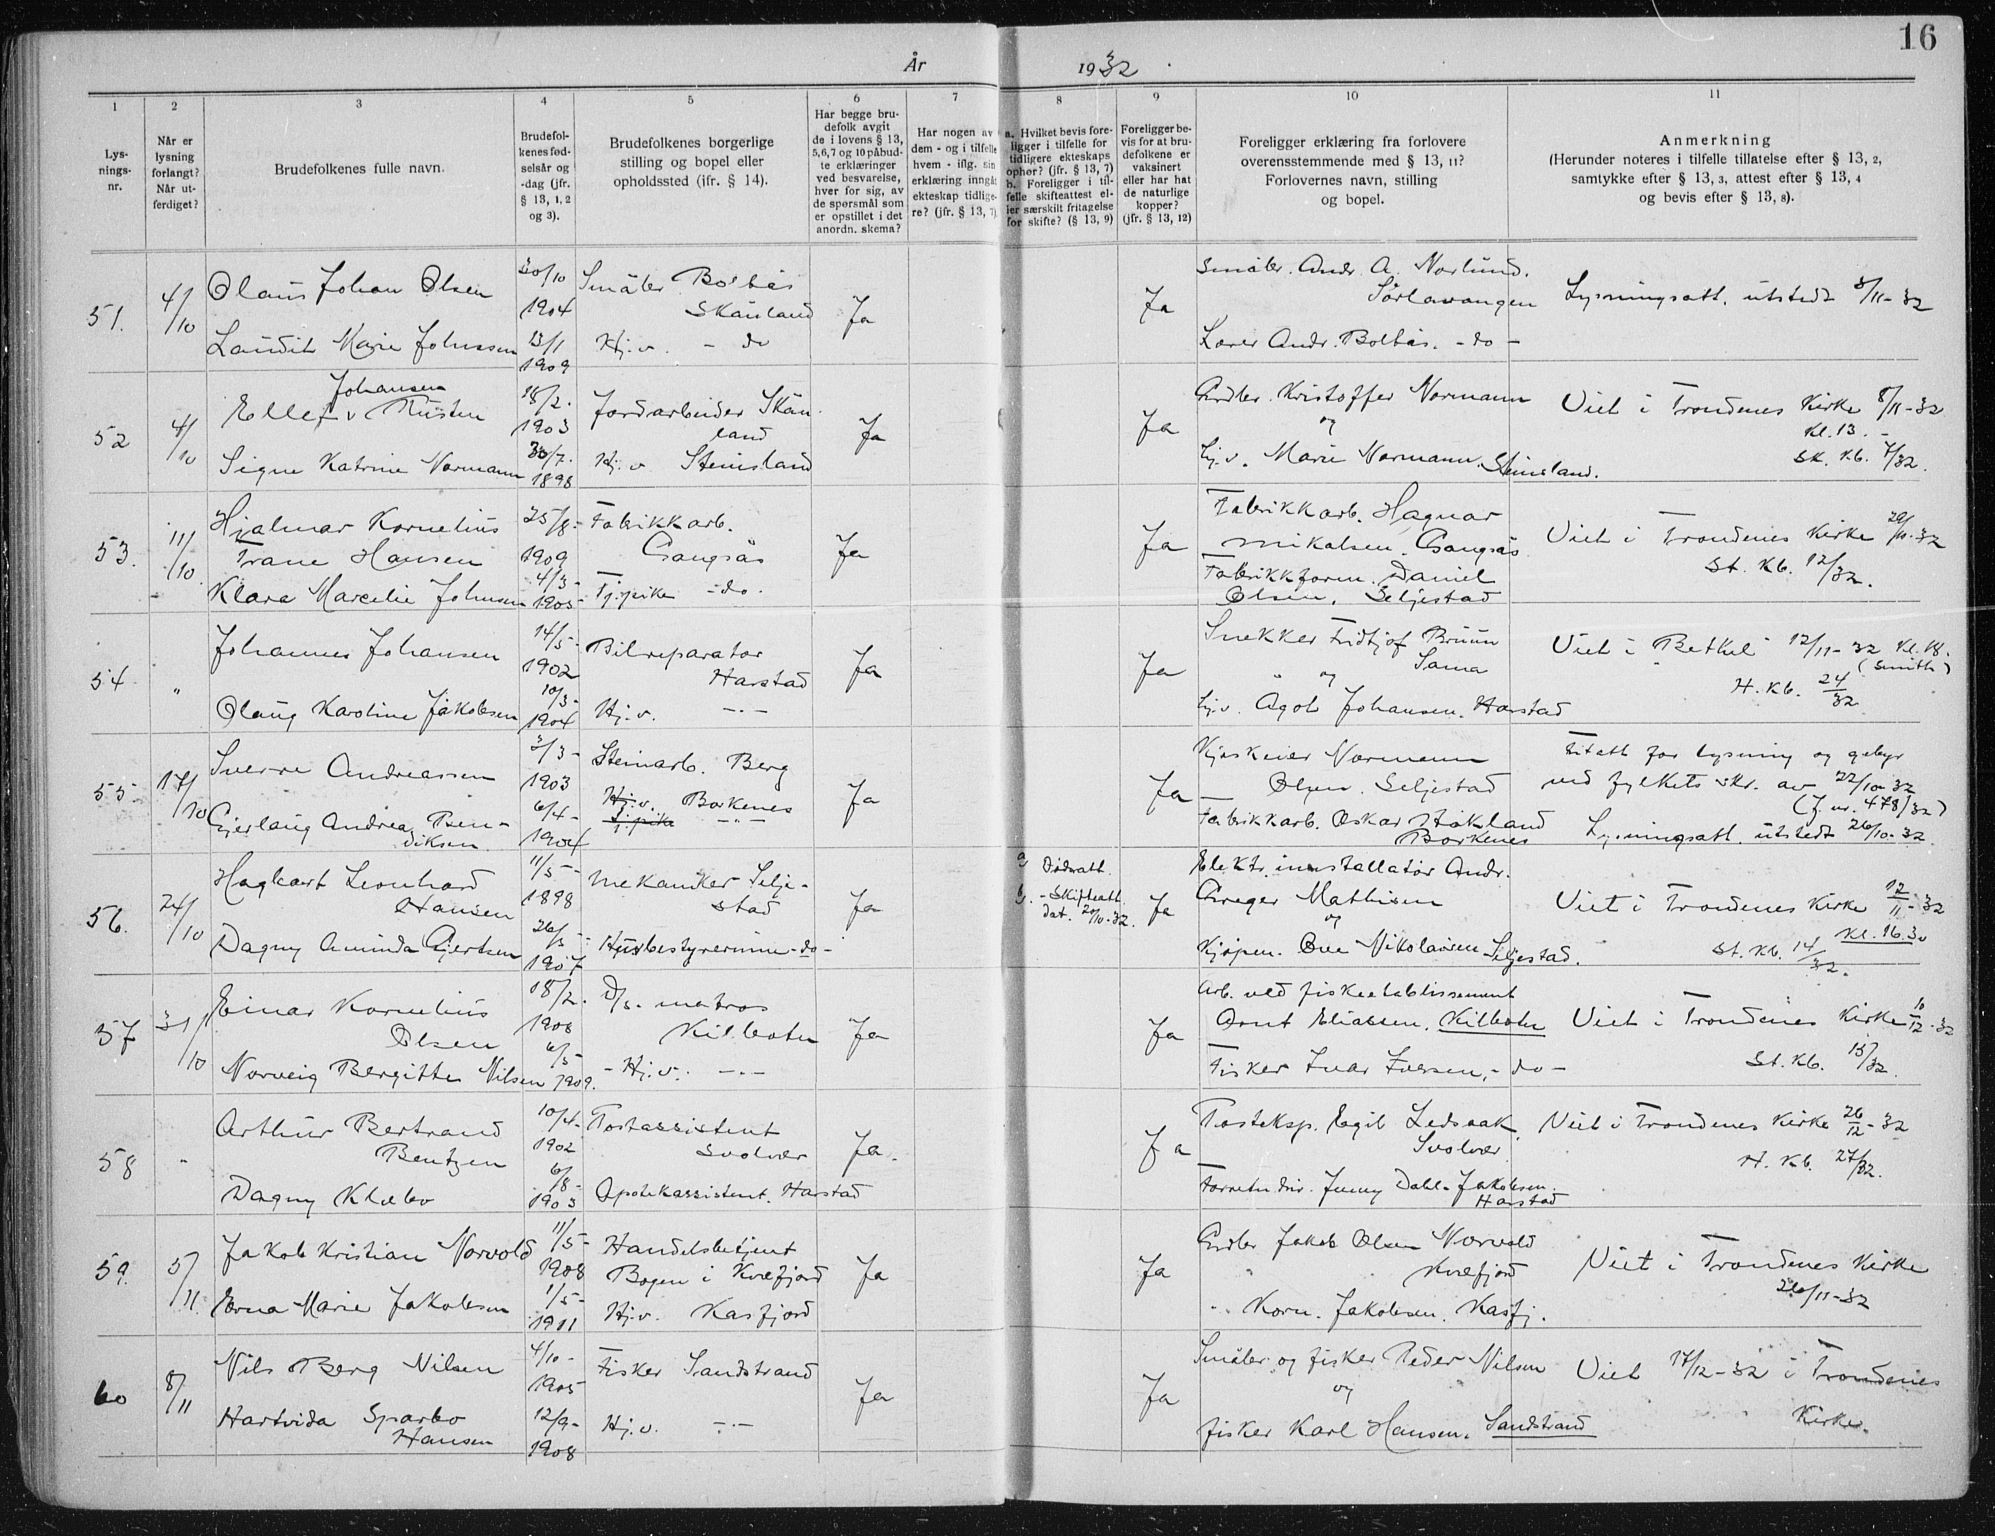 16
År 1932
1 2 3 4 5 6 7 8 9 10 11
Lys-
nings-
nr.
Når er
lysning
forlangt?
Når ut-
ferdiget?
Brudefolkenes fulle navn.
Brudefol-
kenes fød-
selsår og
-dag (jfr.
§ 13, 1, 2
og 3).
Brudefolkenes borgerlige
stilling og bopel eller
opholdssted (ifr. § 14).
Har begge bru-
defolk avgit
de i lovens § 13,
5,6,7 og 10 påbud-
te erklæringer
ved besvarelse,
hver for sig, av
de spørsmål som
er opstillet i det
anordn. skema?
Har nogen av
dem - og i tilfelle
hvem - iflg. sin
erklæring inngåt
ekteskap tidlige-
re? (jfr. § 13, 7)
a. Hvilket bevis fore-
ligger i tilfelle for
tidligere ekteskaps
ophør? (jfr. § 13, 7)
b. Foreligger i til-
felle skifteattest el-
ler særskilt fritagelse
for skifte? (§ 13, 9)
Foreligger be-
vis for at bru-
defolkene er
vaksinert
eller har hat
de naturlige
kopper?
(jfr. § 13, 12)
Foreligger erklæring fra forlovere
overensstemmende med § 13, 11?
Forlovernes navn, stilling
og bopel.
Anmerkning
(Herunder noteres i tilfelle tillatelse efter § 13, 2,
samtykke efter § 13, 3, attest efter § 13, 4
og bevis efter § 13, 8).
51. 4/10
Olaus Johan Olsen
30/10 1904
Småbr. Boltås
Skånland
Ja
Ja
Småbr. Andr. A. Norlund.
Sørlavangen
Lysningsatt. utstedt 8/11-32
Laudit Marie Johnssen
13/1 1909
Hj.v. - do
Lærer Andr. Boltås. - do -
52 4/10
Johansen
Ellef v Rusten
18/2. 1903
Jordarbeider Skån
land
Ja
Ja
Grdbr. Kristoffer Normann
og
Viet i Trondenes Kirke 8/11-32
Kl. 13. -
Signe Katrine Normann
30/7. 1898
Hj. v Steinsland
Hj.v. Marie Normann. Steinsland.
Sk. Kb. 7/32.
53. 11/10.
Hjalmar Kornelius
Trane Hansen
25/8- 1909
Fabrikkarb.
Gangsås
Ja
Ja
Fabrikkarb. Hagnar
Mikalsen. Gangsås
Viet i Trondenes Kirke 29/11-32
St. Kb. 12/32.
Klara Marcelie Johnsen
4/3- 1905
Tj.pike - do.
Fabrikkform. Daniel
Olsen, Seljestad
54 "
Johannes Johansen
14/5- 1902
Bilreparatør
Harstad
Ja
Ja
Snekker Fridtjof Bruun
Sama
og
Viet i Bethel 12/11-32 Kl. 18.
(Smith)
H. Kb. 24/32
Olaug Karoline Jakobsen
10/3- 1904
Hj.v. -"-
Hj.v. Agot Johansen. Harstad
55 17/10
Sverre Andreassen
3/3- 1903
Steinarb. Berg
Ja
Ja
Normann
Olsen. Seljestad
Fritatt for lysning og gebyr
ved fylkets skr. av 22/10-32
(J. nr. 478/32)
Gjerlaug Andrea Ben-
diksen
6/4- 1904
Hj.v. Borkenes
Tj.pike -"-
Fabrikkarb. Oskar Hokland
Borkenes
Lysningsatt. utstedt 26/10-32.
56. 24/10
Hagbart Leonhard
Hansen
11/5- 1898
Mekaniker Selje-
stad
Ja
a) Dødsatt.
b). - Skifteatt.
dat. 20/10-32.
Ja
Elektr. innstallatør Andr.
Greger Mathisen
og
Viet i Trondenes Kirke 12/11-32
Kl. 16.30
St. Kb. 14/32.
Dagny Aminda Gjertsen
26/5- 1907
Husbestyrerinne - do -
Kjøpm. Ove Nikolaisen Seljestad.
57 31/10
Einar Kornelius
Olsen
18/2. 1908
D/s. matros
Kilbotn
Ja
Ja
Arb. ved fiskeetablissement
Arnt Eliassen, Kilbotn
Viet i Trondenes Kirke 10/12-32
St. Kb. 15/32.
Norveig Bergitte Nilsen
6/5 1909.
- Hj.v. -"-
Fisker Ivar Iversen, - do -
58 "
Arthur Bertrand
Bentzen
10/4- 1902
Postassistent
Svolvær
Ja.
Ja
Posteksp. Egil Ledsaak.
Svolvær
Viet i Trondenes Kirke 26/12-32
H. Kb. 27/32.
Dagny Klæbo
6/8- 1903
Apotekassistent. Harstad
Jenny Dahl-Jakobsen.
Harstad
59. 5/11.
Jakob Kristian Norvold
11/5- 1908
Handelsbetjent
Bogen i Kvæfjord
Ja
Ja
Grdbr Jakob Olsen Norvold
Kvæfjord
Viet i Trondenes Kirke
26/11-32
Erna Marie Jakobsen
1/5- 1911
Hj.v. Kasfjord
" Korn. Jakobsen. Kasfj.
60 8/11
Nils Berg Nilsen
4/10- 1905
Fisker Sandstrand
Ja
Ja
Småbr. og fisker Peder Nilsen
og
Viet 17/12-32 i Trondenes
Kirke.
Hartvida Sparbo
Hansen
12/9- 1908
Hj.v. -"-
fisker Karl Hansen. Sandstrand